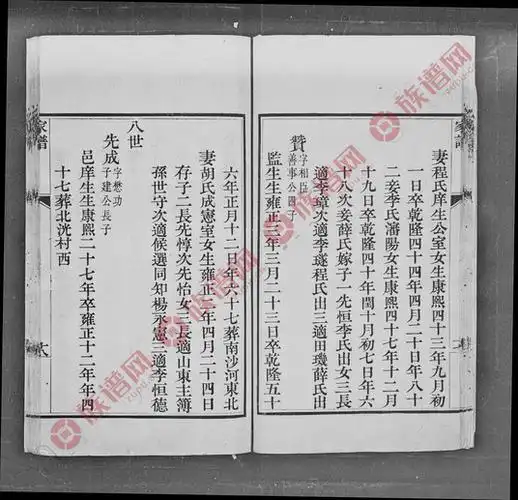 家譜
妻程氏庠生公室女生康熙四十三年九月初
一日卒乾隆四十年四月二十日年八十
二妾李氏瀋陽女生康熙四十七年十二月
十九日卒乾隆四十年閏十月初七日年六
十八次妾薛氏嫁子一先恒李氏出女三長
適李章次適李璲程氏出三適田璣薛氏出
贊字相臣善事公四子
監生生雍正三年三月二十三日卒乾隆五十
六年正月十二日年六十七葬南沙河東北
妻胡氏成憲室女生雍正年四月二十四日
存子二長先惇次先怡女三長適山東主簿
孫世守次適候選同知楊永憲三適李恒德
八世
先成字懋功子建公長子
邑庠生生康熙二十七年卒雍正十二年年四
十七葬北洸村西
家譜
族谱网